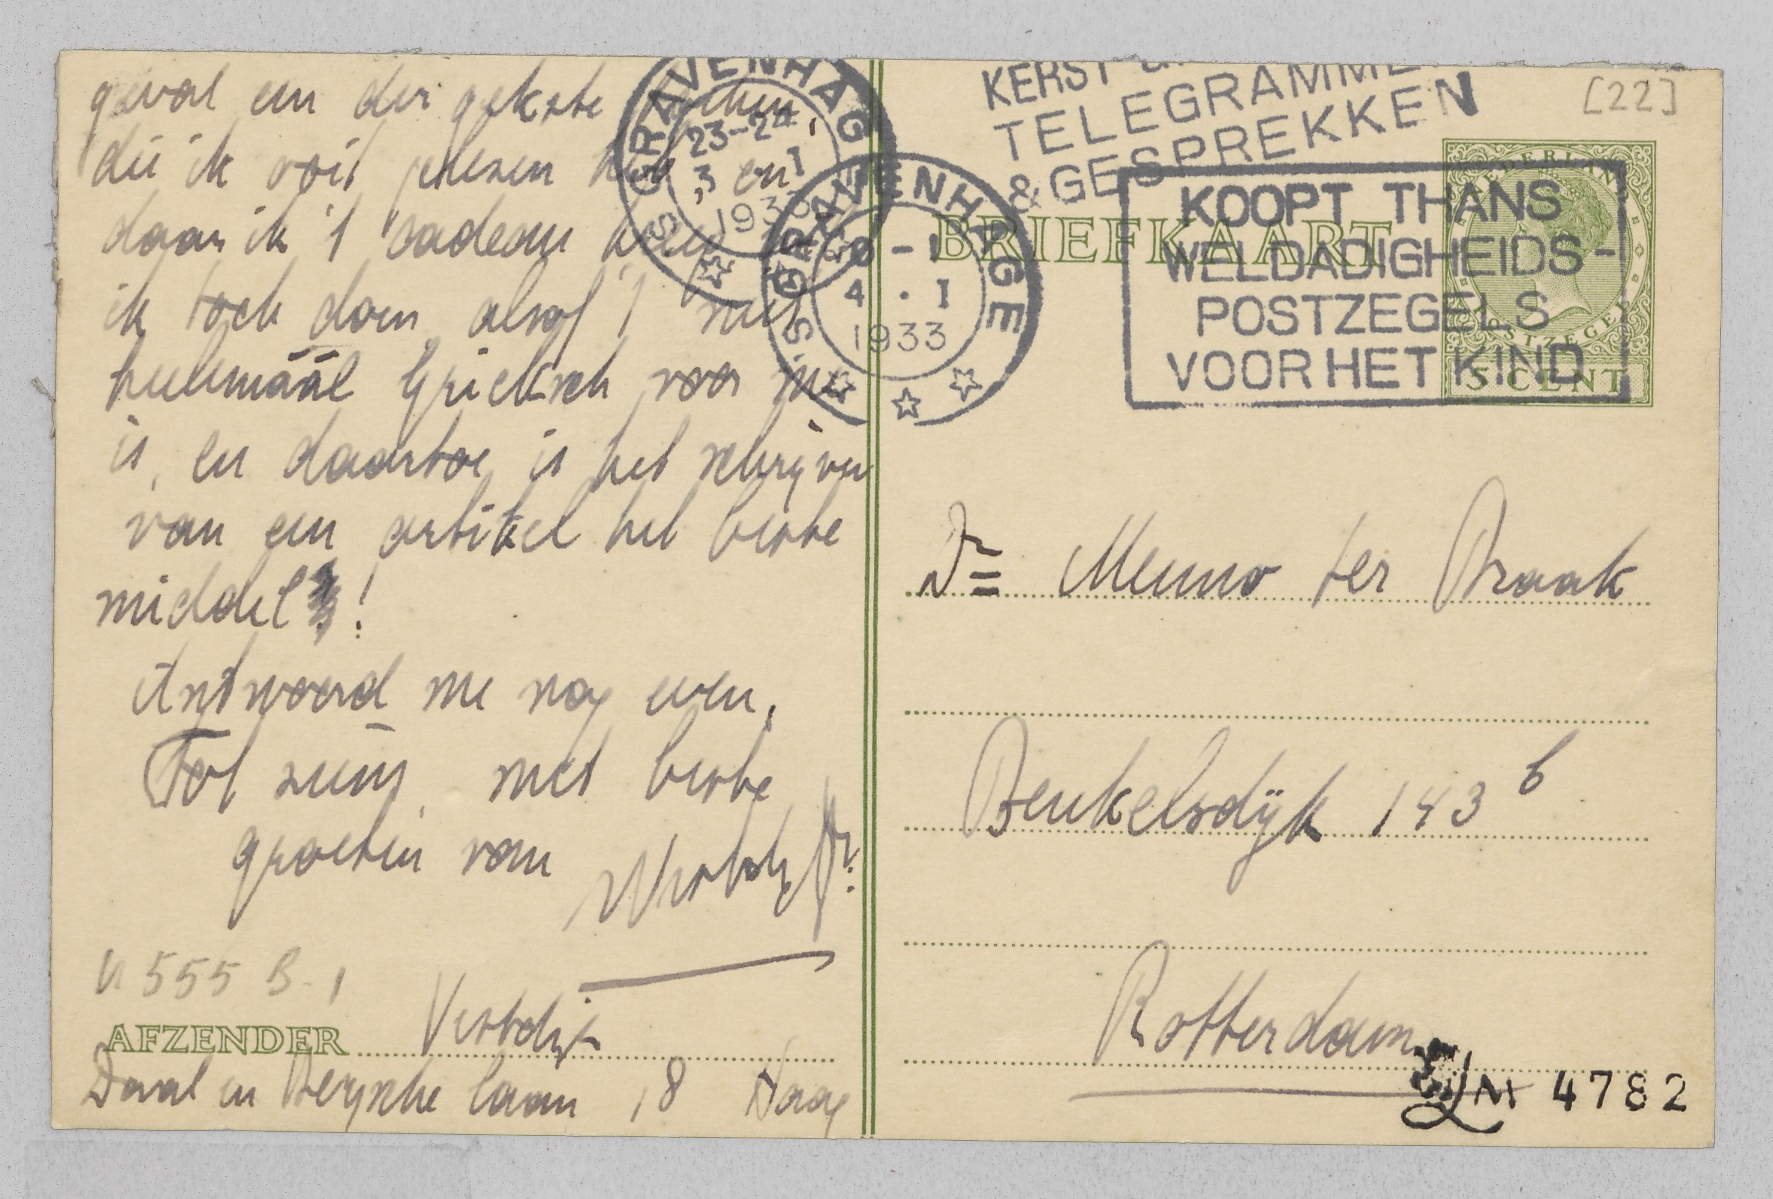 geval een der gekste boeken,
die ik ooit gelezen heb en
daar ik 't cadeau kreeg, wil
ik toch doen, alsof 't niet
heelemáál Grieksch voor me
is, en daartoe is het schrijven
van een artikel het beste
middel!
Antwoord me nog even.
Tot ziens, met beste
groeten van
U 555 B. 1
AFZENDER Verbdijk
Daal en Bergsche laan 18 Haag
'S GRAVENHAGE
23-24
3 I
1933
'S GRAVENHAGE
0-1
4 · I
1933
KERST
TELEGRAMME
& GESPREKKEN
[22]
KOOPT THANS
WELDADIGHEIDS-
POSTZEGELS
VOOR HET KIND
NEDERLAND
POSTZEGEL
5 CENT
BRIEFKAART
Dr Menno ter Braak
Beukelsdijk 143 b
Rotterdam
4782